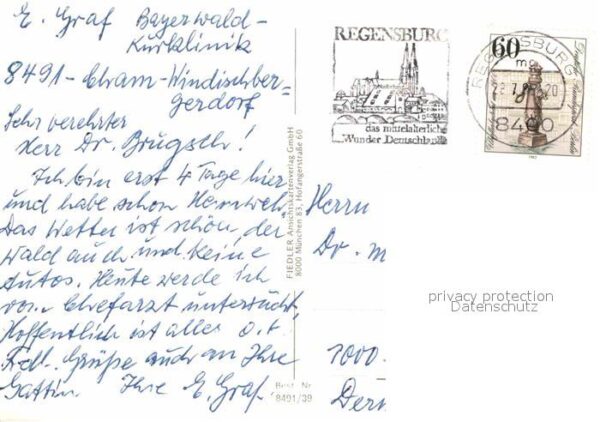 E. Graf Bayerwald-
Kurklinik
8491-Cham-Windischber=
gerdorf
Sehr verehrter
Herr Dr. Brugsch!
Ich bin erst 4 Tage hier
und habe schon Heimweh.
Das Wetter ist schön, der
Wald auch und keine
Autos. Heute werde ich
vom Chefarzt untersucht,
Hoffentlich ist alles o.k.
Frdl. Grüße auch an Ihre
Gattin. Ihre E. Graf.
FIEDLER Ansichtskartenverlag GmbH
8000 München 83, Hofangerstraße 60
Best. Nr.
8491/39
REGENSBURG
das mittelalterliche
Wunder Deutschlands
60
REGENSBURG
8400
Herrn
Dr. M
1000
privacy protection
Datenschutz